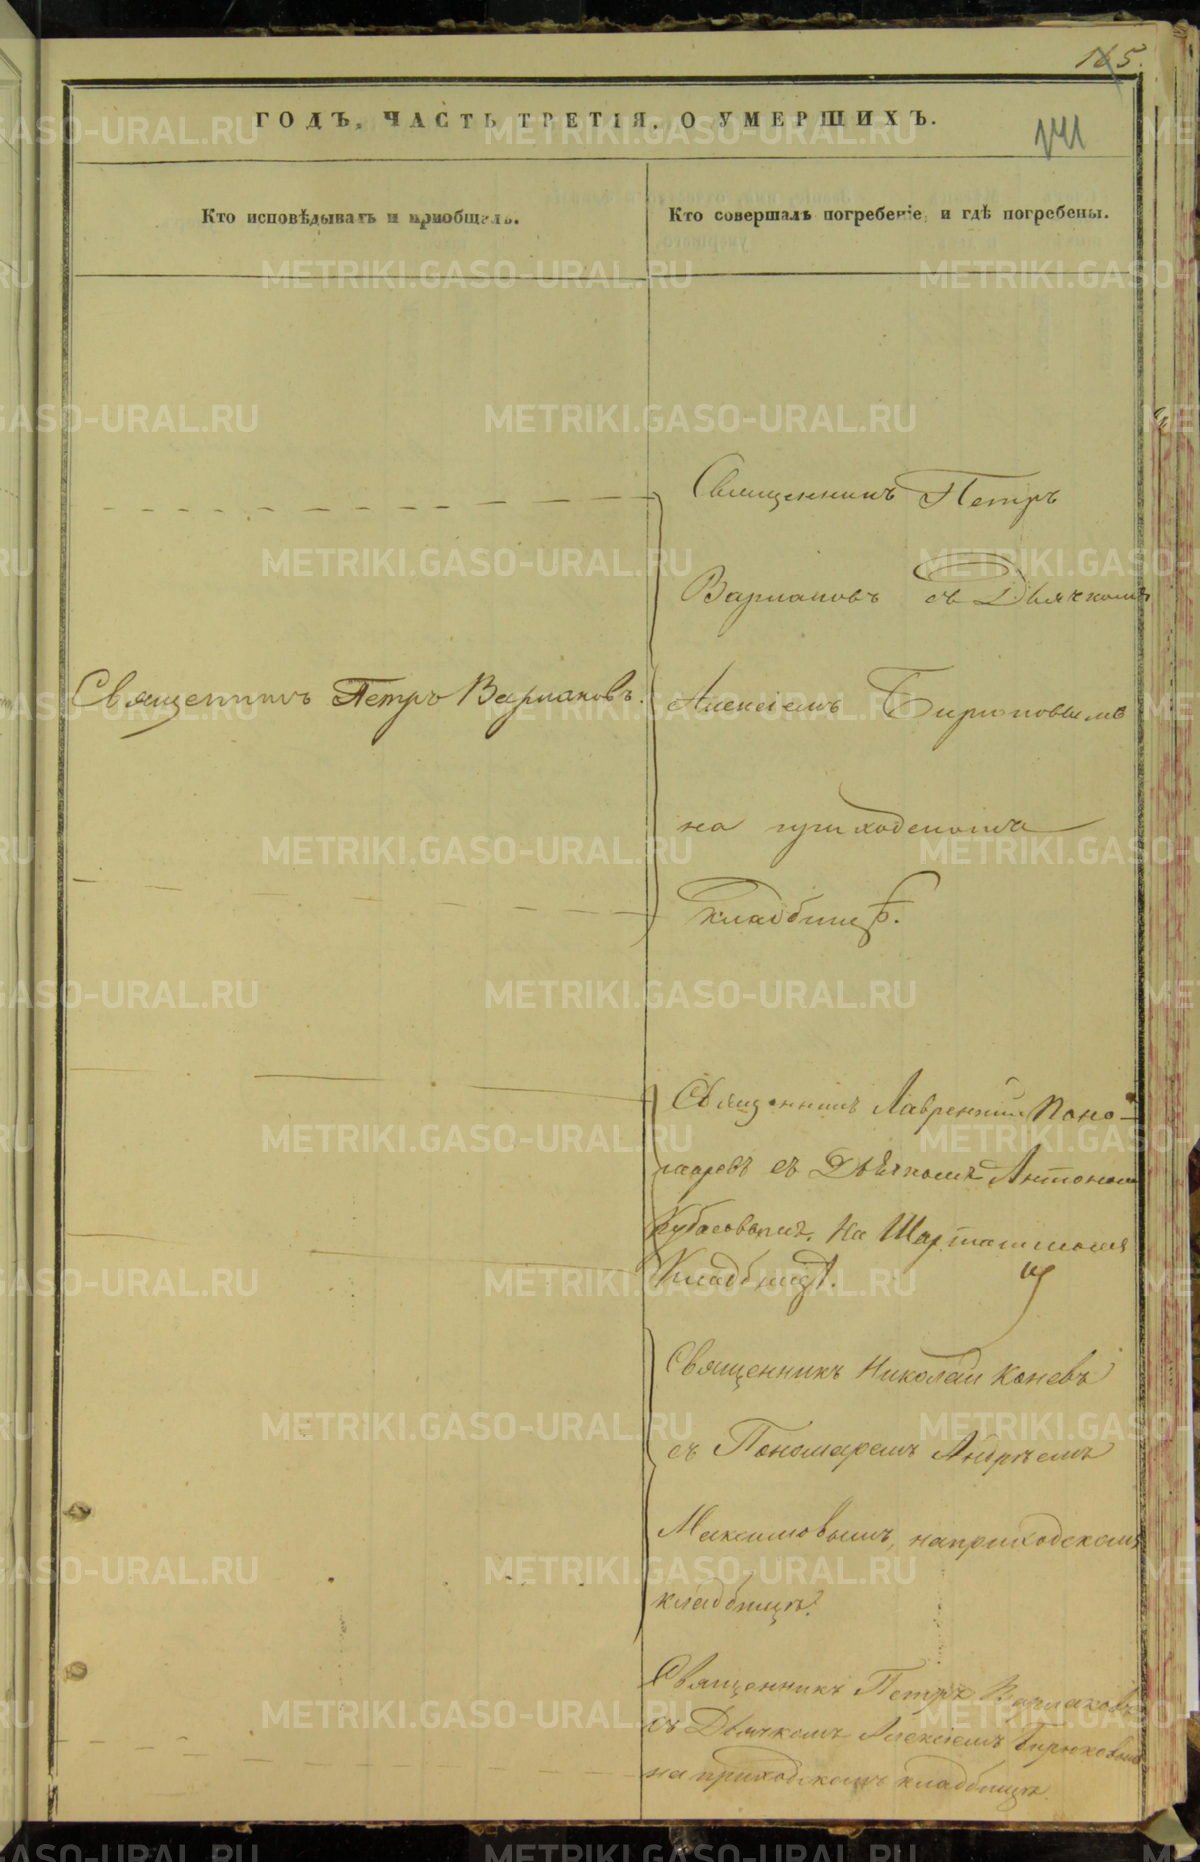 165.
141
ГОДЪ, ЧАСТЬ ТРЕТІЯ, О УМЕРШИХЪ.
Кто исповѣдывалъ и пріобщалъ.
Кто совершалъ погребеніе, и гдѣ погребены.
Священникъ Петръ
Варлаковъ съ Дьячкомъ
Священникъ Петръ Варлаковъ.
Алексіемъ Бирюковымъ
на приходскомъ
кладбищѣ.
Священникъ Лаврентій Поно-
маревъ съ Дьячкомъ Антономъ
Кубасовымъ. На Шарташскомъ
Кладбищѣ.
Священникъ Николай Коневъ
съ Пономаремъ Андреемъ
Максимовымъ, на приходскомъ
кладбищѣ.
Священникъ Петръ Варлаковъ
съ Дьячкомъ Алексіемъ Бирюковымъ
на приходскомъ кладбищѣ.
METRIKI.GASO-URAL.RU